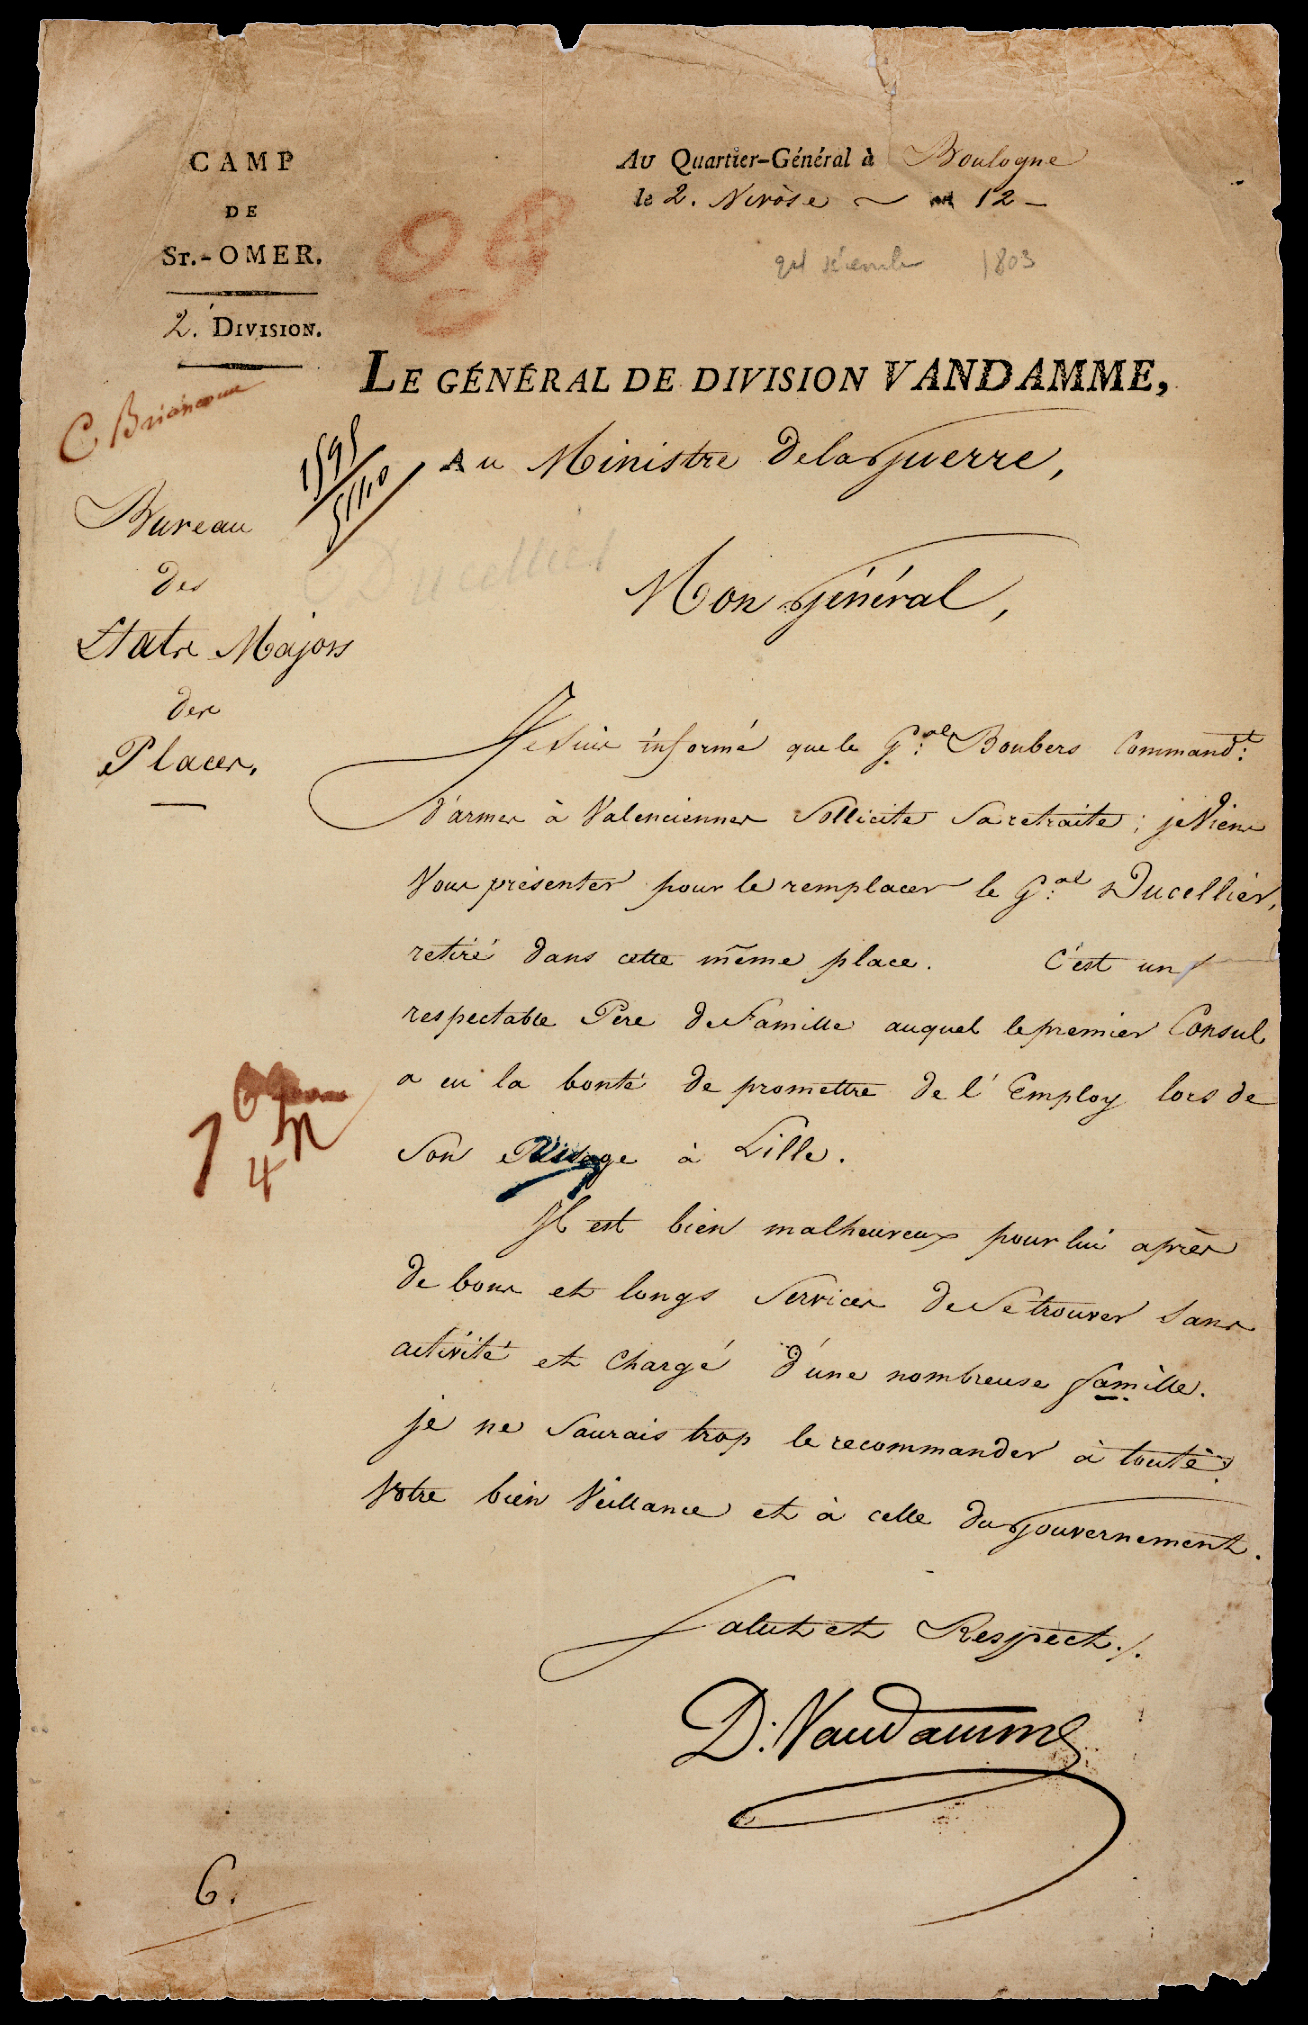 CAMP
DE
St.-OMER.
2.e DIVISION.
Au Quartier-Général à Boulogne
le 2. Nivôse an 12
1803
LE GÉNÉRAL DE DIVISION VANDAMME,
Au Ministre de la Guerre,
Bureau
des
Etats Majors
des
Places.
Ducellier
Mon Général,
Je suis informé que le G.al Boubers Command.t
d'armes à Valenciennes sollicite sa retraite; je viens
vous présenter pour le remplacer le G.al Ducellier,
retiré dans cette même place. C'est un
respectable Pere de Famille auquel le premier Consul
a eu la bonté de promettre de l'Employ lors de
son à Lille.
Il est bien malheureux pour lui après
de bons et longs services de se trouver sans
activité et chargé d'une nombreuse famille.
je ne saurais trop le recommander à toute
votre bien veillance et à celle du Gouvernement.
Salut et Respect./.
D. Vandamme
4
6.